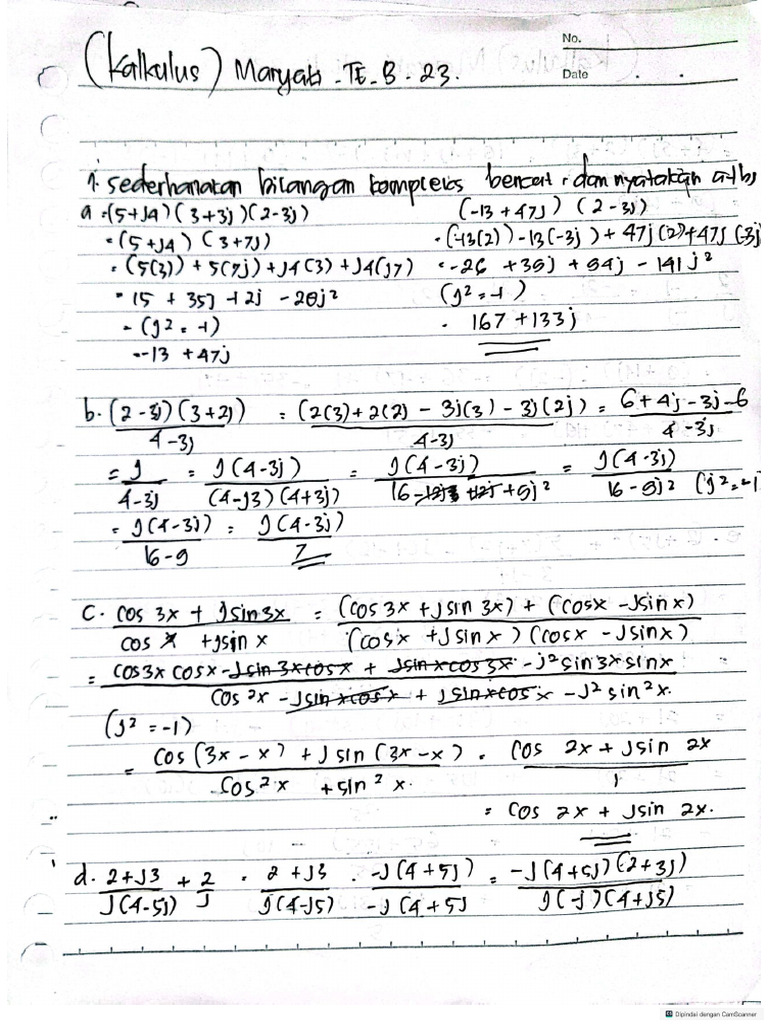 (Kalkulus) Maryati - TE - B - 23.
No.
Date . .
1. Sederhanakan bilangan kompleks berikut. dan nyatakan a+bj
a = (5+j4)(3+3j)(2-3j)
= (5+j4) (3+7j)
= (5(3)) + 5(7j) + j4(3) + j4(j7)
= 15 + 35j + 12j - 28j²
= (j² = -1)
= -13 + 47j
(-13 + 47j) (2 - 3j)
= (-13(2)) - 13(-3j) + 47j(2) + 47j (3j)
= -26 + 39j + 94j - 141j²
(j² = -1)
= 167 + 133j
b. (2-3j)(3+2j) / 4-3j = (2(3) + 2(2j - 3j(3) - 3j(2j) / 4-3j = 6+4j-3j-6 / 4-3j
= j / 4-3j = j(4-3j) / (4-j3)(4+3j) = j(4-3j) / 16 -12j + 12j + 9j² = j(4-3j) / 16 - 9j² (j²=-1
= j(4-3j) / 16-9 = j(4-3j) / 7
c. cos 3x + jsin 3x / cos x + jsin x = (cos 3x + jsin 3x) + (cosx - jsin x) / (cos x + jsin x) (cosx - jsinx)
= cos3x cosx - jsin 3x cosx + jsin x cos 3x - j² sin 3x sinx / cos²x - jsin x cos x + jsin x cos x - j² sin²x.
(j² = -1)
= cos (3x - x) + j sin (3x-x) / cos²x + sin²x. = cos 2x + jsin 2x / 1
= cos 2x + jsin 2x.
d. 2+j3 / j(4-5j) + 2 / j = 2+j3 / j(4-j5) . -j(4+5j) / -j(4+5j = -j(4+5j)(2+3j) / j(-j)(4+j5)
Dipindai dengan CamScanner